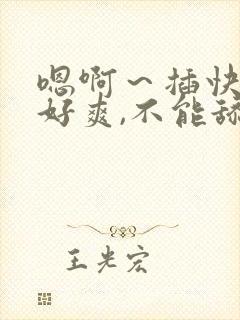 嗯啊～插快
好爽,不能舔
王光宏